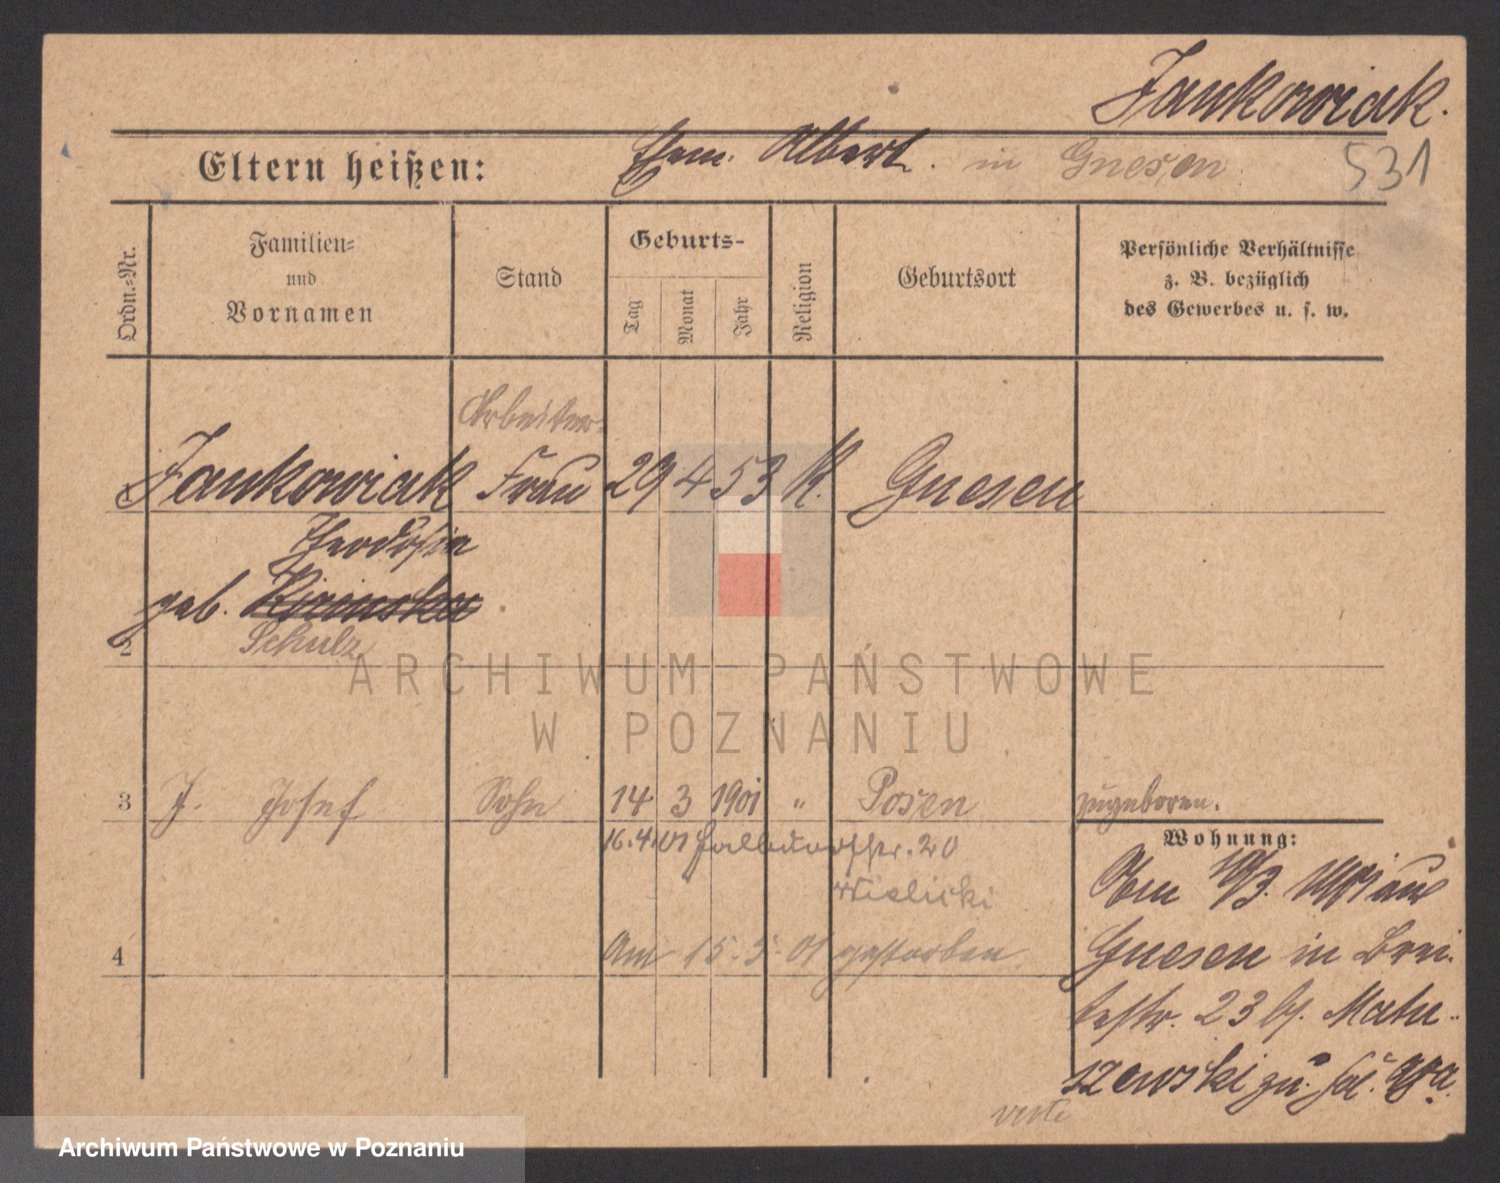 Jankowiak.
Eltern heißen: Ehem. Albert. in Gnesen 531
Ordn.-Nr.
Familien-
und
Vornamen
Stand
Geburts-
Tag
Monat
Jahr
Religion
Geburtsort
Persönliche Verhältnisse
z. B. bezüglich
des Gewerbes u. s. w.
Arbeiter-
Jankowiak Frau 29 4 53 K. Gnesen
Theodosia
geb.
2 Schulz
ARCHIWUM PAŃSTWOWE
W POZNANIU
3 J. Josef Sohn 14 3 1901 " Posen zugeboren.
16.4.01 str. 20
Wielicki
4 Am 15.5.01 gestorben.
Wohnung:
Am 10/3. aus
Gnesen in Brei-
testr. 23 bei Matu-
szewski
verte
Archiwum Państwowe w Poznaniu